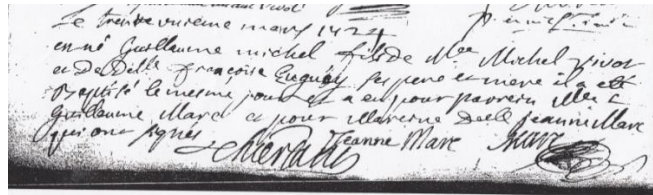 Le trente unieme mars 1724
est né Guillaume michel fils de Mee Michel vivot
et De Delle francoise Euguéy ses pere et mere il a etté
Baptisé le mesme jour et a eu pour parrein Me
Guillaume Marc et pour Mareine Delle jeanne Marc
qui ont signés Jeanne Marc Marc